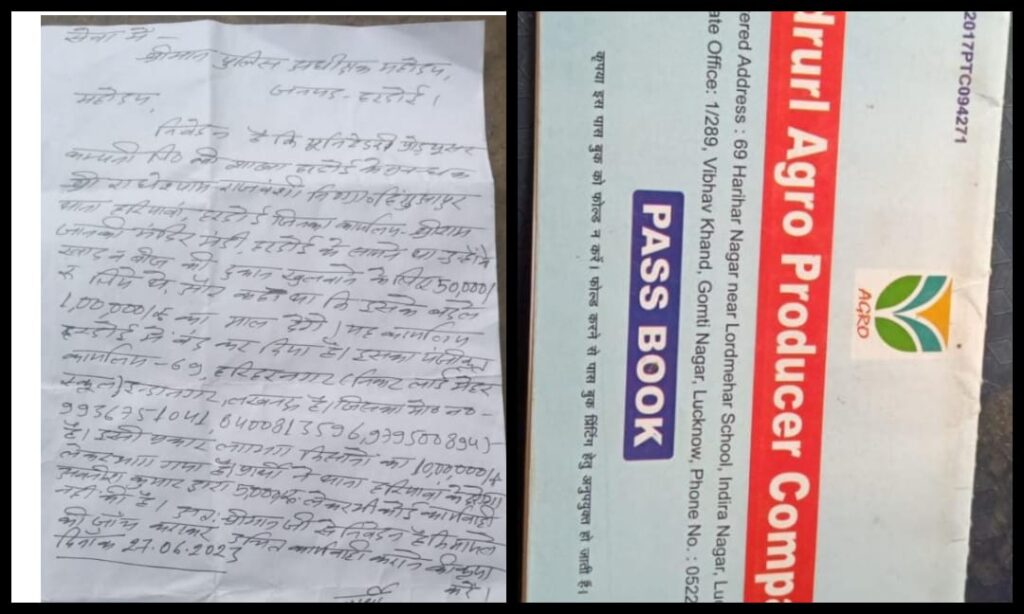 सेवा में -
श्रीमान पुलिस अधीक्षक महोदय,
जनपद - हरदोई ।
महोदय,
निवेदन है कि
कम्पनी लि० की शाखा हरदोई के प्रबन्धक
श्री राधेश्याम राजवंशी निवासी
थाना हरियावां, हरदोई जिनका कार्यालय - श्रीराम
जानकी मंदिर मंडी, हरदोई के सामने था
खाद व बीज की दुकान खुलवाने के लिए 50,000/
रु लिये थे, और कहा था कि इसके बदले
1,00,000/ रु का माल देंगे । यह कार्यालय
हरदोई से बंद कर दिया है। इसका पंजीकृत
कार्यालय - 69, हरिहरनगर (निकट लार्ड मेहर
स्कूल) इन्दिरानगर, लखनऊ है। जिसका मो० न० -
9936751041, 6400813596,
है। इसी प्रकार लगभग किसानों का 10,00,000/रु
लेकर भाग गया है। प्रार्थी ने थाना हरियावां के दरोगा
कुमार द्वारा 5,000 रु. लेकर भी कोई कार्यवाही
नहीं की है। अतः श्रीमान जी से निवेदन है कि मामले
की जाँच कराकर उचित कार्यवाही कराने की कृपा
करें।
दिनाँक 27.06.2023
प्रार्थी
2017PTC094271
AGRO
drurl Agro Producer Compa
ered Address : 69 Harihar Nagar near Lordmehar School, Indira Nagar, Lu
ate Office: 1/289, Vibhav Khand, Gomti Nagar, Lucknow, Phone No.: 0522
PASS BOOK
कृपया इस पास बुक को फोल्ड न करें। फोल्ड करने से पास बुक प्रिंटिंग हेतु अनुपयुक्त हो जाती है।